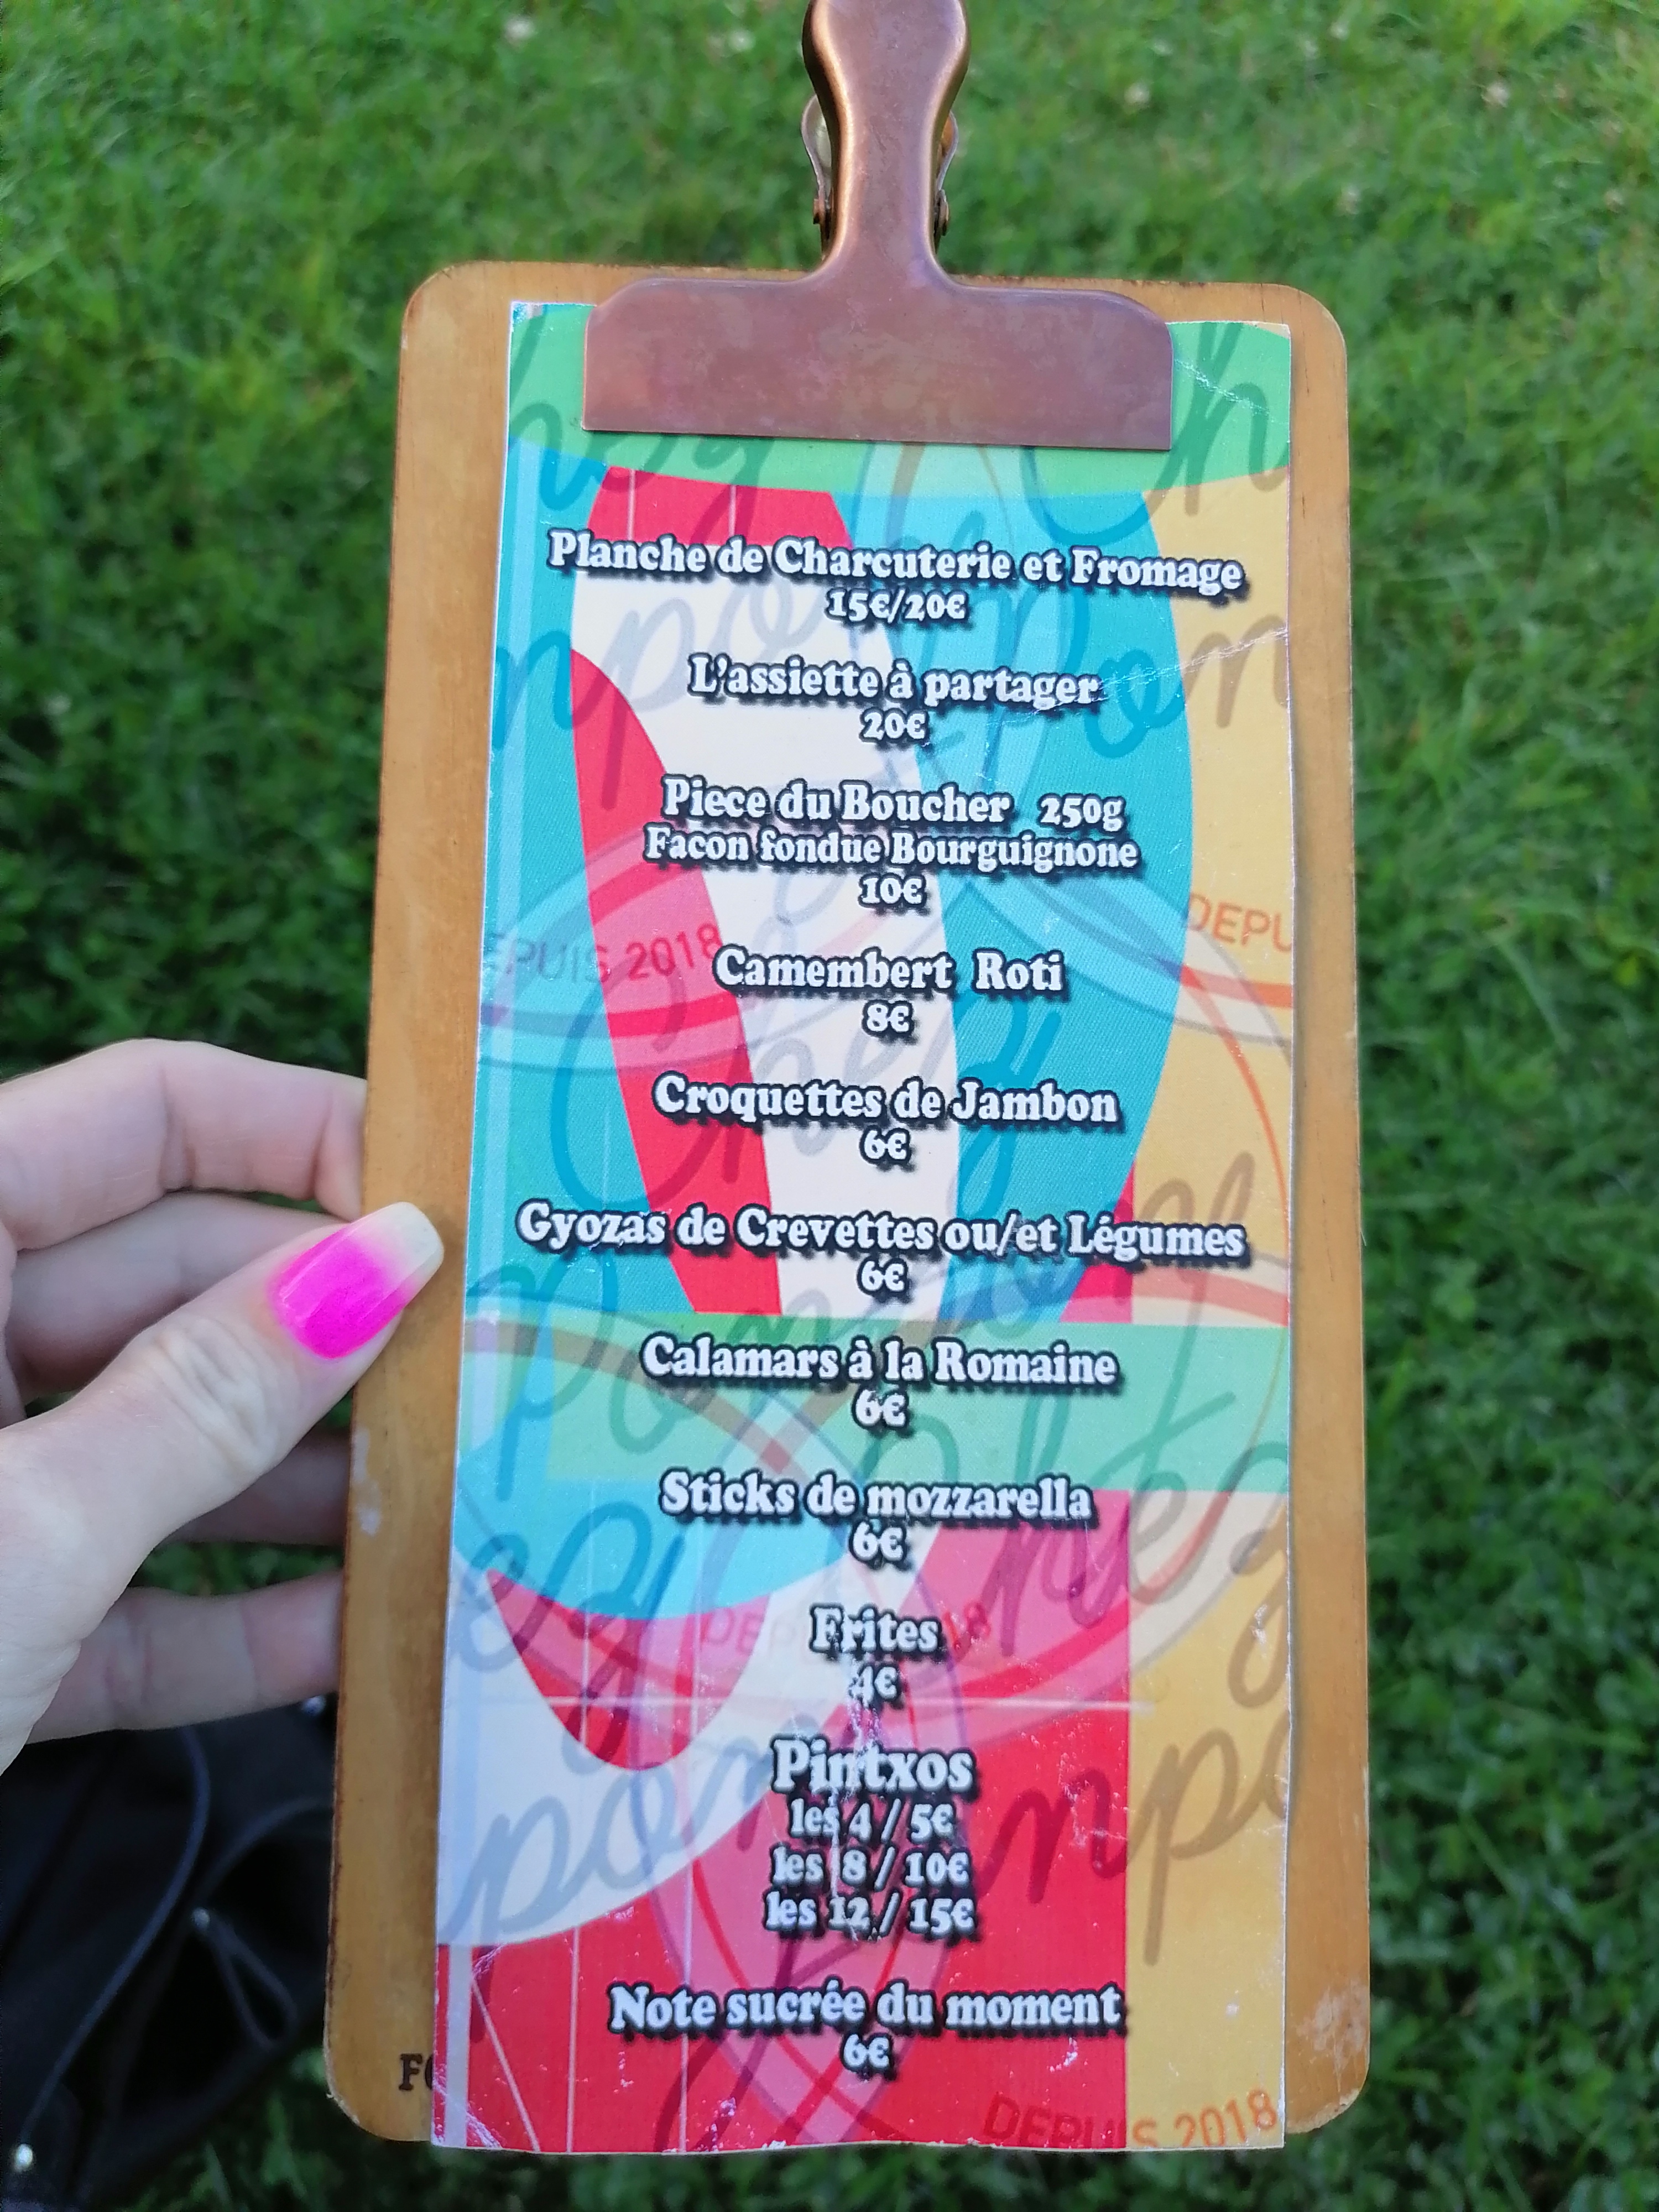 Planche de Charcuterie et Fromage
15€/20€
L'assiette à partager
20€
Piece du Boucher 250g
Facon fondue Bourguignone
10€
DEPU
EPUIS 2018
Camembert Roti
8€
Croquettes de Jambon
6€
Gyozas de Crevettes ou/et Légumes
6€
Calamars à la Romaine
6€
Sticks de mozzarella
6€
Frites
4€
Pintxos
les 4 / 5€
les 8 / 10€
les 12 / 15€
Note sucrée du moment
6€
DEPUIS 2018